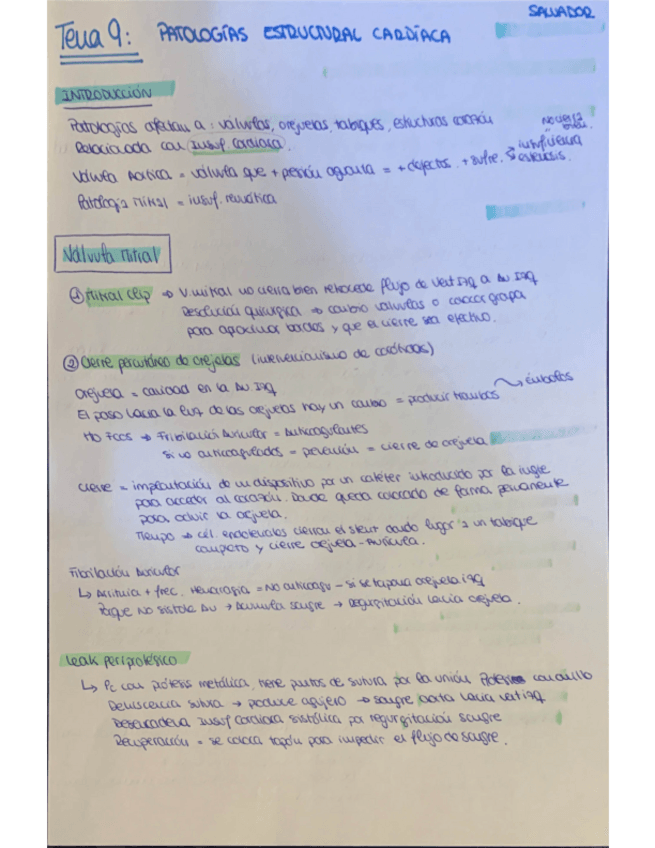 SALVADOR
Tema 9: PATOLOGÍAS ESTRUCTURAL CARDÍACA
INTRODUCCIÓN
Patologías afectan a: válvulas, orejuelas, tabiques, estructuras corazón
Relacionada con Insuf. cardiaca.
Válvula Aórtica = válvula que + presión aguanta = + defectos. + sufre. insuficiencia
estenosis.
Patología mitral = insuf. reumática
Válvula mitral
① Mitral clip → V. mitral no cierra bien retrocede flujo de Vent Izq a Au Izq
Resolución quirúrgica → cambio válvulas o colocar grapa
para aproximar bordes y que el cierre sea efectivo.
② Cierre percutáneo de orejelas (intervencionismo de coronarias)
Orejuela = cavidad en la Au Izq
El paso hacia la luz de las orejuelas hay un cambio = producir trombos → émbolos
Mo Fcos → Fribilación Auricular = Anticoagulantes
Si no anticoagulados = prevención = cierre de orejuela
Cierre = implantación de un dispositivo por un catéter introducido por la ingle
para acceder al corazón. Donde queda colocado de forma permanente
para ocluir la orejuela.
Tiempo → cél. endoteliales cierran el stent dando lugar a un tabique
completo y cierre orejuela - Aurícula.
Fibrilación Auricular
↳ Arritmia + frec. Hemorragia = No anticoagu - si se tapona orejuela izq
Porque No sístole Au → Acumula sangre → Regurgitación hacia orejuela.
Leak periprotésico
↳ Pc con prótesis metálica, tiene puntos de sutura por la unión con anillo
Dehiscencia sutura → produce agujero → sangre aorta hacia vent izq
Desencadena Insuf cardiaca sistólica por regurgitación sangre
Recuperación = se coloca tapón para impedir el flujo de sangre.